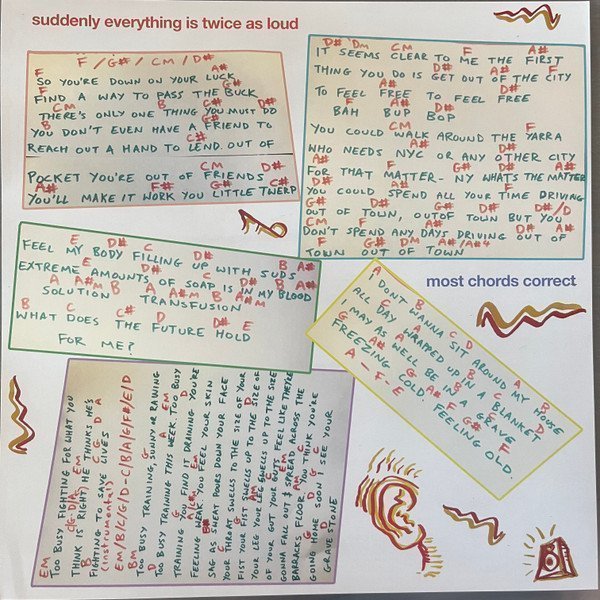 suddenly everything is twice as loud
F / G# / CM / D#
F A#
SO YOU'RE DOWN ON YOUR LUCK
F
FIND A WAY TO PASS THE BUCK
CM B C# D#
THERE'S ONLY ONE THING YOU MUST DO
B C#
YOU DON'T EVEN HAVE A FRIEND TO
C#
REACH OUT A HAND TO LEND. OUT OF
CM D#
POCKET YOU'RE OUT OF FRIENDS
A# F# G C#
YOU'LL MAKE IT WORK YOU LITTLE TWERP
D# Dm CM F A#
IT SEEMS CLEAR TO ME THE FIRST
D# A# F
THING YOU DO IS GET OUT OF THE CITY
D#
TO FEEL FREE TO FEEL FREE
F A# D#
BAH BUP BOP
CM F
YOU COULD WALK AROUND THE YARRA
A# D#
WHO NEEDS NYC OR ANY OTHER CITY
A# F G# D# A#
FOR THAT MATTER- NY WHAT'S THE MATTER
D# A# F
YOU COULD SPEND ALL YOUR TIME DRIVING
G# D# G# D# D#/D
OUT OF TOWN, OUTOF TOWN BUT YOU
CM F A# D# A#
DON'T SPEND ANY DAYS DRIVING OUT OF
F G# DM A#/A#4
TOWN OUT OF TOWN
E D# C D# B A#
FEEL MY BODY FILLING UP WITH SUDS
E D# C D# B A#
EXTREME AMOUNTS OF SOAP IS IN MY BLOOD
A A#M B A A#M B A#M
SOLUTION TRANSFUSION
B C C# D D# E
WHAT DOES THE FUTURE HOLD
FOR ME?
most chords correct
A B C D
I DON'T WANNA SIT AROUND MY HOUSE
ALL DAY WRAPPED UP IN A BLANKET
I MAY AS WELL BE IN A GRAVE
FREEZING COLD, FEELING OLD
A - F - E
EM
TOO BUSY FIGHTING FOR WHAT YOU
THINK IS RIGHT! HE THINKS HE'S
FIGHTING TO SAVE LIVES
(instrumental)
EM/B/C/G/D-C/B/A/G/F#/E/D
TOO BUSY TRAINING, SUNNY OR RAINING
TOO BUSY TRAINING THIS WEEK. TOO BUSY
TRAINING AND FIND IT DRAINING YOU'RE
FEELING WEAK YOU FEEL YOUR SKIN
SAG AS SWEAT POURS DOWN YOUR FACE
YOUR THROAT SWELLS TO THE SIZE OF YOUR
FIST YOUR FIST SWELLS UP TO THE SIZE OF
YOUR LEG YOUR LEG SWELLS UP TO THE SIZE
OF YOUR GUT YOUR GUTS FEEL LIKE THEY'RE
GONNA FALL OUT & SPREAD ACROSS THE
BARRACKS FLOOR YOU THINK YOU'RE
GOING HOME SOON I SEE YOUR
GRAVE STONE